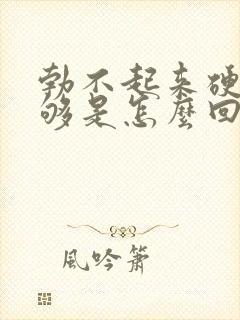 勃不起来硬
够是怎麼回
風吟簫